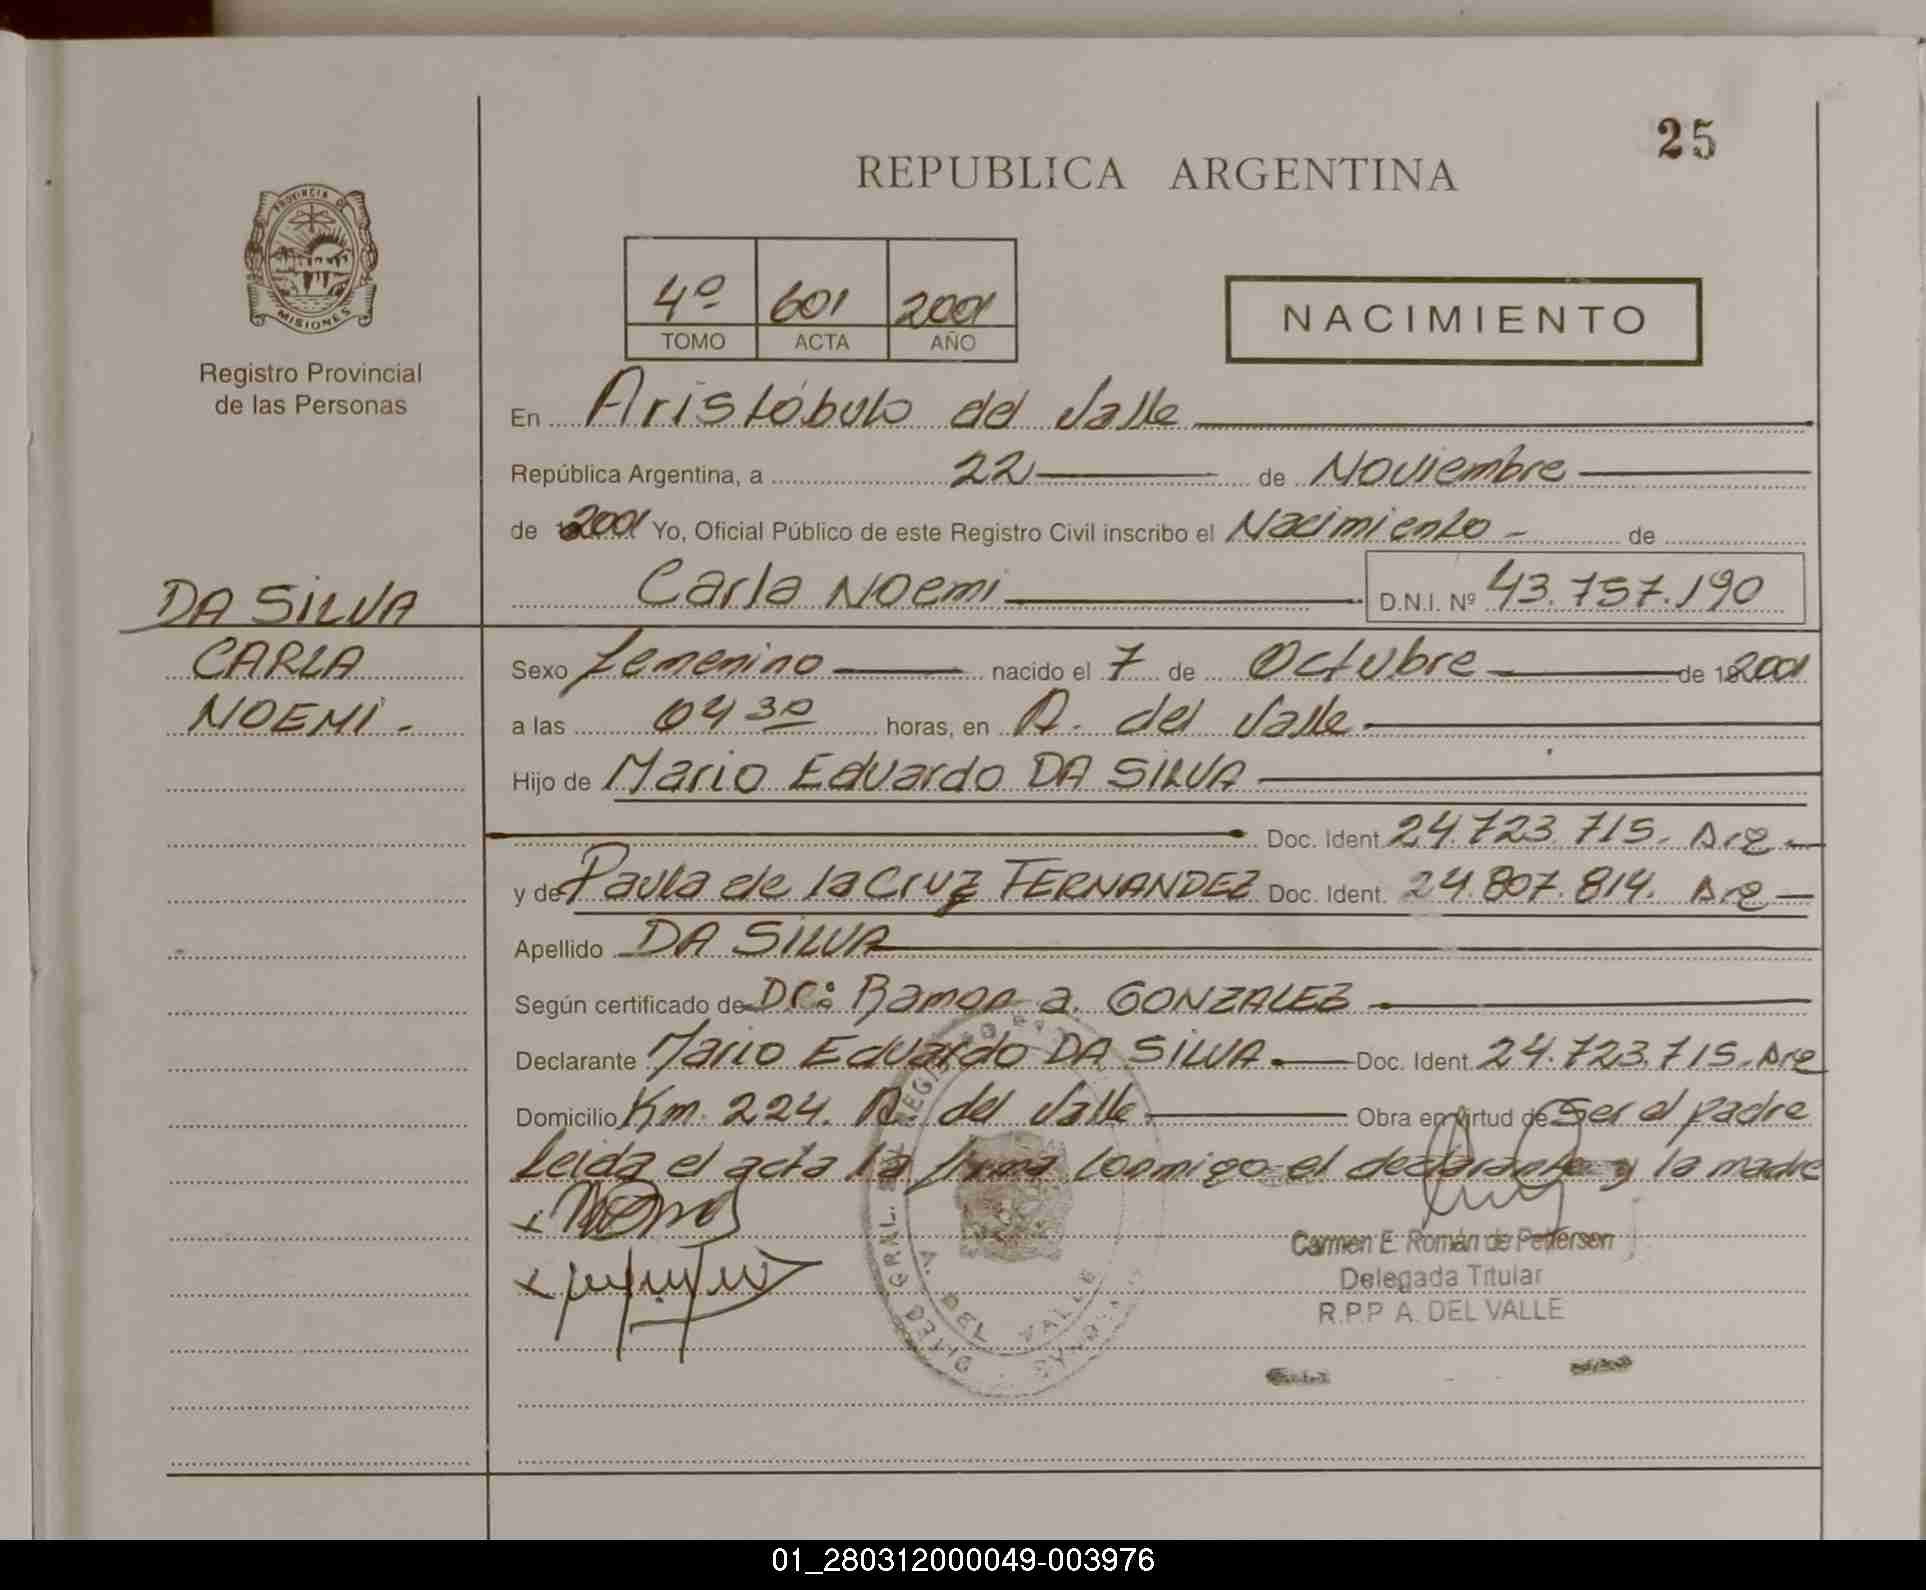 25
REPUBLICA ARGENTINA
PROVINCIA DE
MISIONES
Registro Provincial
de las Personas
4º 601 2001
TOMO ACTA AÑO
NACIMIENTO
En Aristóbulo del Valle
República Argentina, a 22 de Noviembre
de 2001 Yo, Oficial Público de este Registro Civil inscribo el Nacimiento - de
Carla Noemi D.N.I. Nº 43.757.190
DA SILVA
CARLA
NOEMI -
Sexo femenino nacido el 7 de Octubre de 192001
a las 04 30 horas, en A. del Valle
Hijo de Mario Eduardo DA SILVA
Doc. Ident. 24.723.715. Arg -
y de Paula de la Cruz FERNANDEZ Doc. Ident. 24.807.814. Arg -
Apellido DA SILVA
Según certificado de Dr: Ramon a. GONZALEZ
Declarante Mario Eduardo DA SILVA. Doc. Ident. 24.723.715. Arg
Domicilio Km. 224. A. del Valle Obra en virtud de Ser el padre
Leida el acta la firma conmigo el declarante y la madre
x
x
A. DEL VALLE
Carmen E. Román de Pettersen
Delegada Titular
R.P.P A. DEL VALLE
01_280312000049-003976